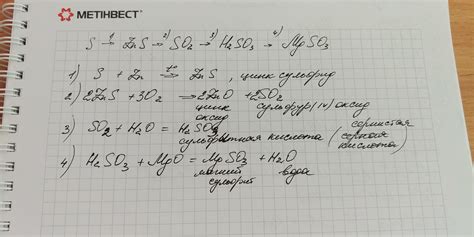 МЕТІНВЕСТ
S 1) → ZnS 2) → SO2 3) → H2SO3 4) → MgSO3
1) S + Zn t° → ZnS, цинк сульфид
2) 2ZnS + 3O2 → 2ZnO + 2SO2
цинк оксид сульфур(IV) оксид
3) SO2 + H2O = H2SO3 сернистая
сульфитная кислота (серная
кислота)
4) H2SO3 + MgO = MgSO3 + H2O
магний вода
сульфит